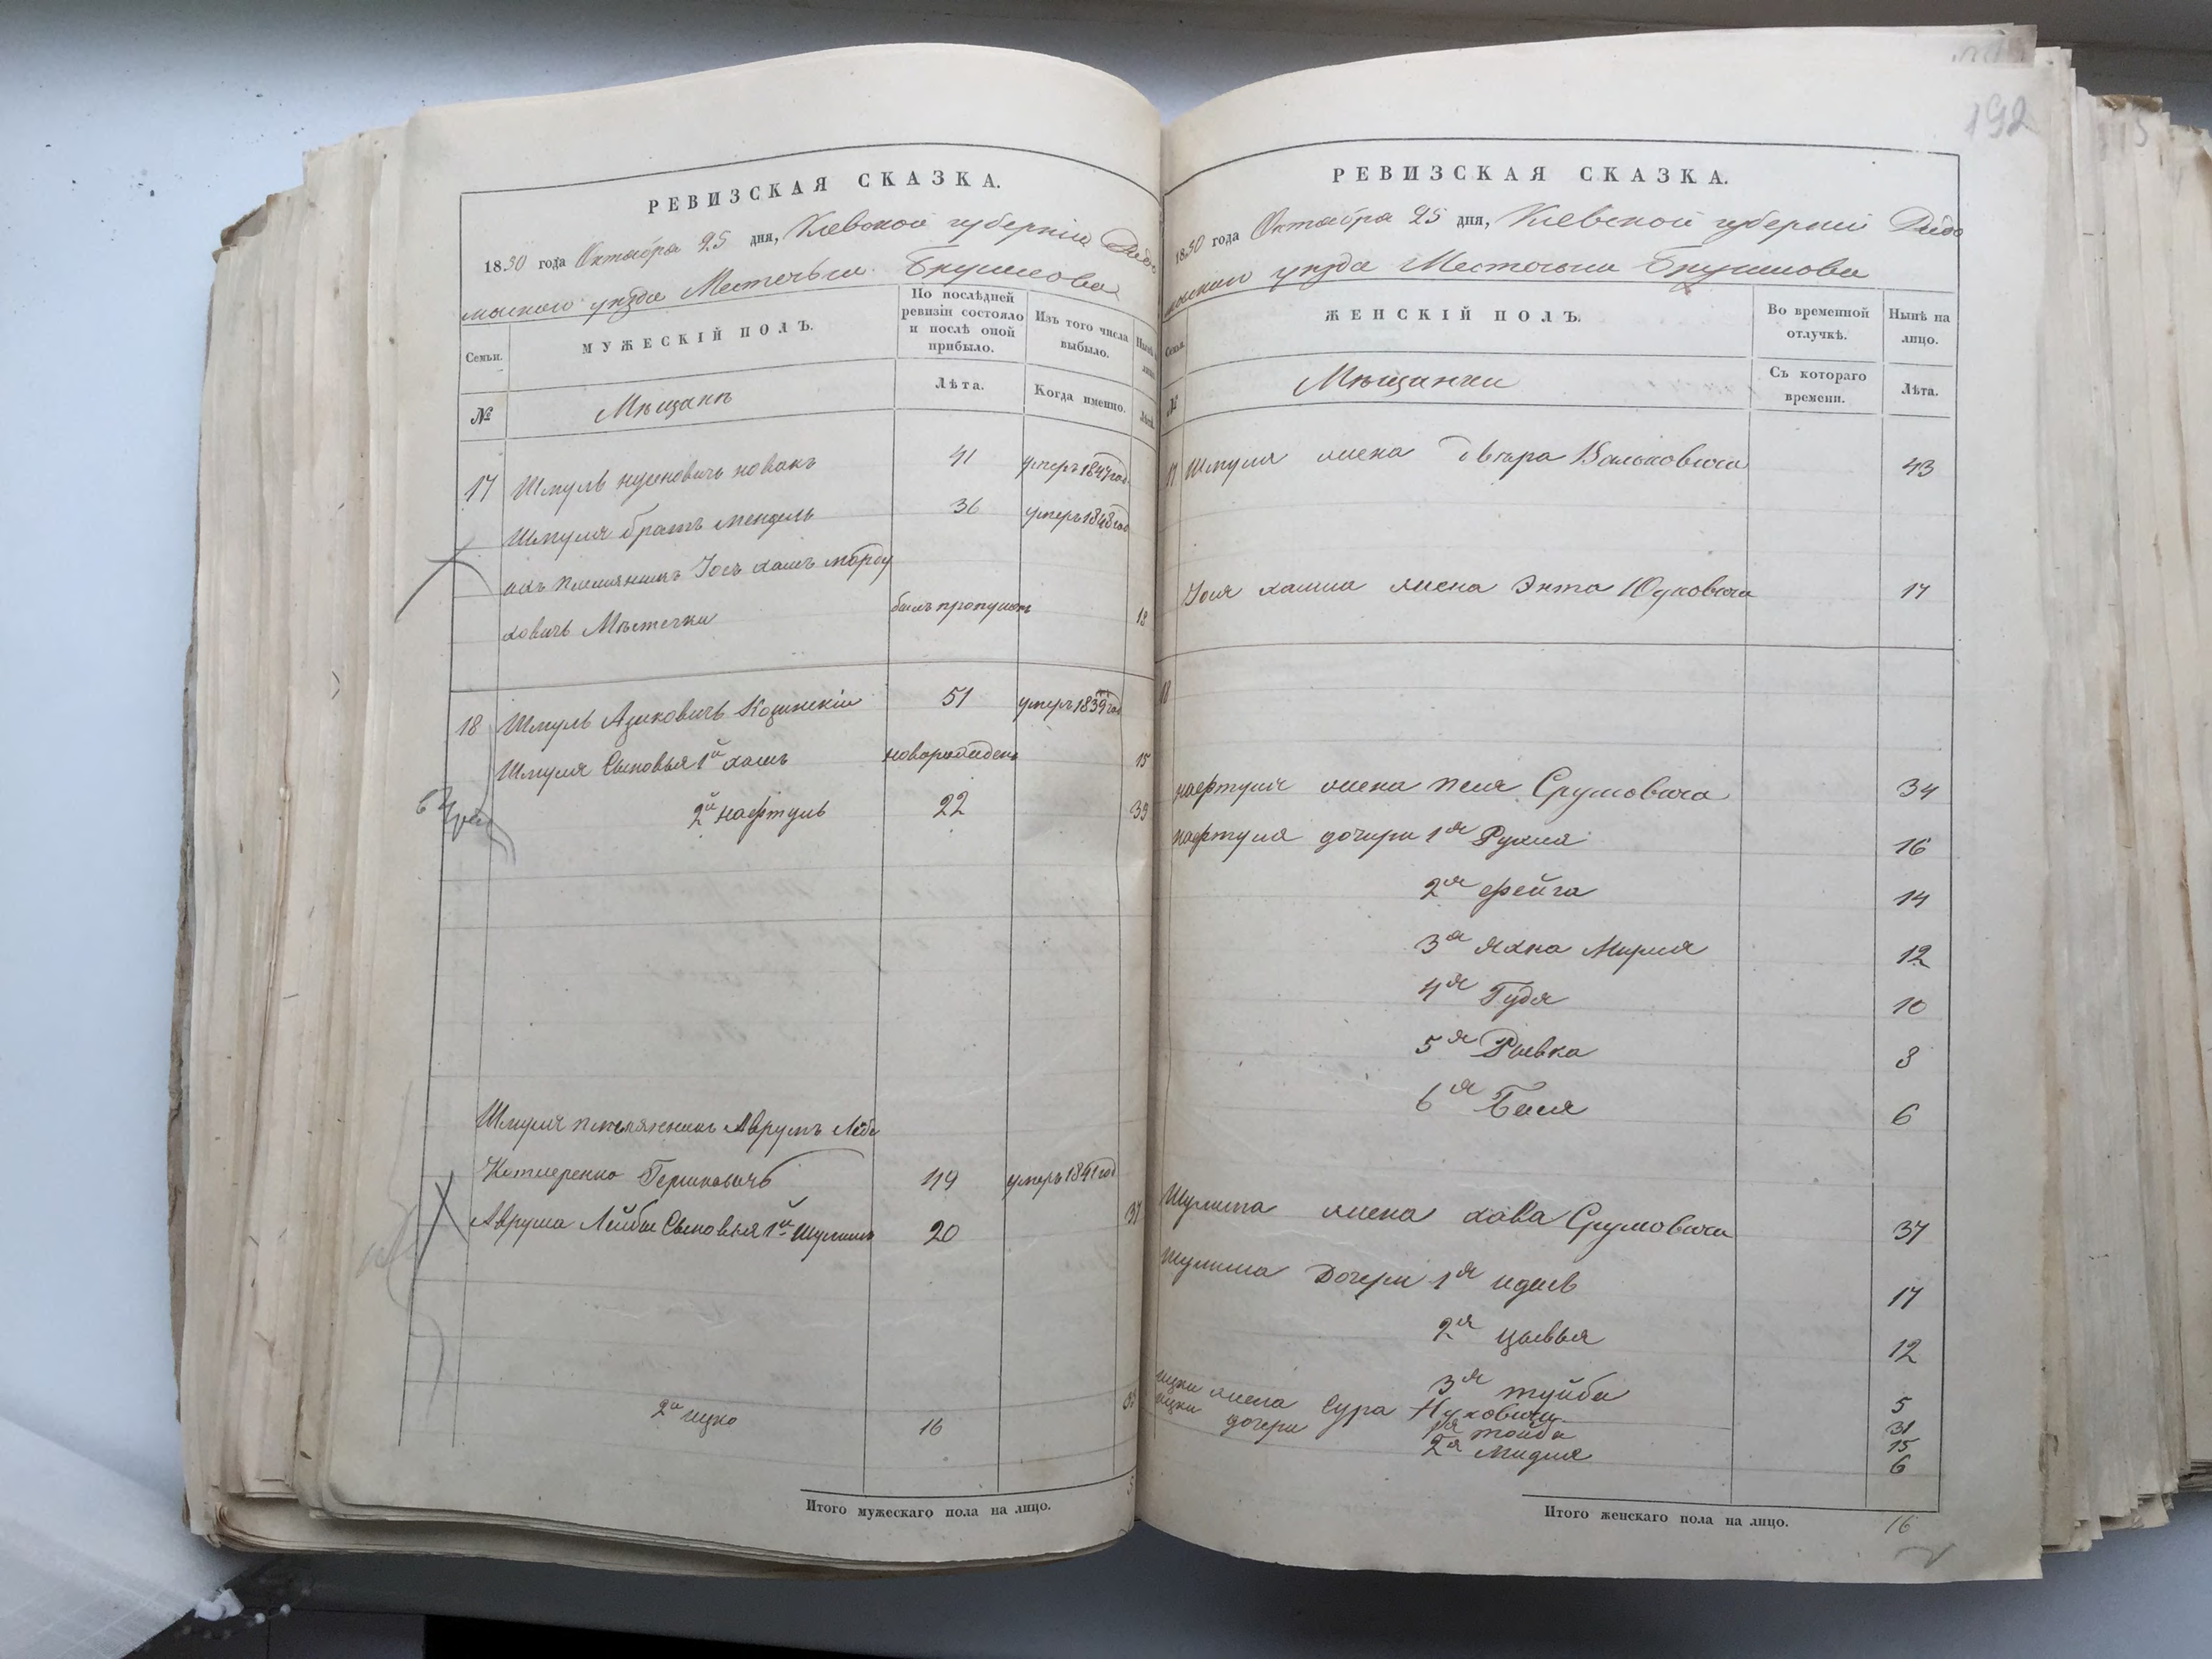 РЕВИЗСКАЯ СКАЗКА.
1850 года Октября 25 дня, Киевской губерніи Радо
мысаго уезда Местечка Брусилова
Семьи.
МУЖЕСКІЙ ПОЛЪ.
По послѣдней ревизіи состояло и послѣ оной прибыло.
Изъ того числа выбыло.
№
Мѣщане
Лѣта.
Когда именно.
17 Шмуль Нусиновичъ Новакъ 41 умеръ 1847 год
Шмуля братъ Мендель 36 умеръ 1848 год
ихъ племянникъ Іось Хаимъ Морду
ховичъ Местечки былъ пропущенъ 18
18 Шмуль Азиковичъ Козинскій 51 умеръ 1839 год
Шмуля Сыновья 1й Хаимъ новорожденъ 15
2й Нафтуль 22 39
Шмуля племянникъ Аврумъ Лейба
Котляренко Гершковичъ 49 умеръ 1841 год
Аврума Лейбы Сыновья 1й Шулимъ 20 37
2й Ицко 16
Итого мужескаго пола на лицо.
192
РЕВИЗСКАЯ СКАЗКА.
1850 года Октября 25 дня, Киевской губерніи Радо
мысаго уезда Местечка Брусилова
Семьи.
ЖЕНСКІЙ ПОЛЪ.
Во временной отлучкѣ.
Нынѣ на лицо.
№
Мѣщанки
Съ котораго времени.
Лѣта.
17 Шмуля жена Двойра Вольковича 43
Іося Хаима жена Энта Юдковича 17
18
Нафтуля жена Песя Срумовича 34
Нафтуля дочери 1я Рухля 16
2я Фейга 14
3я Яхна Мирля 12
4я Гудя 10
5я Рывка 8
6я Бася 6
Шулима жена Хава Срумовича 37
Шулима дочери 1я Идесъ 17
2я Цывья 12
3я Туйба 5
Ицки жена Сура Ицковича 31
Ицки дочери 1я Тойба 15
2я Мидля 6
Итого женскаго пола на лицо. 16